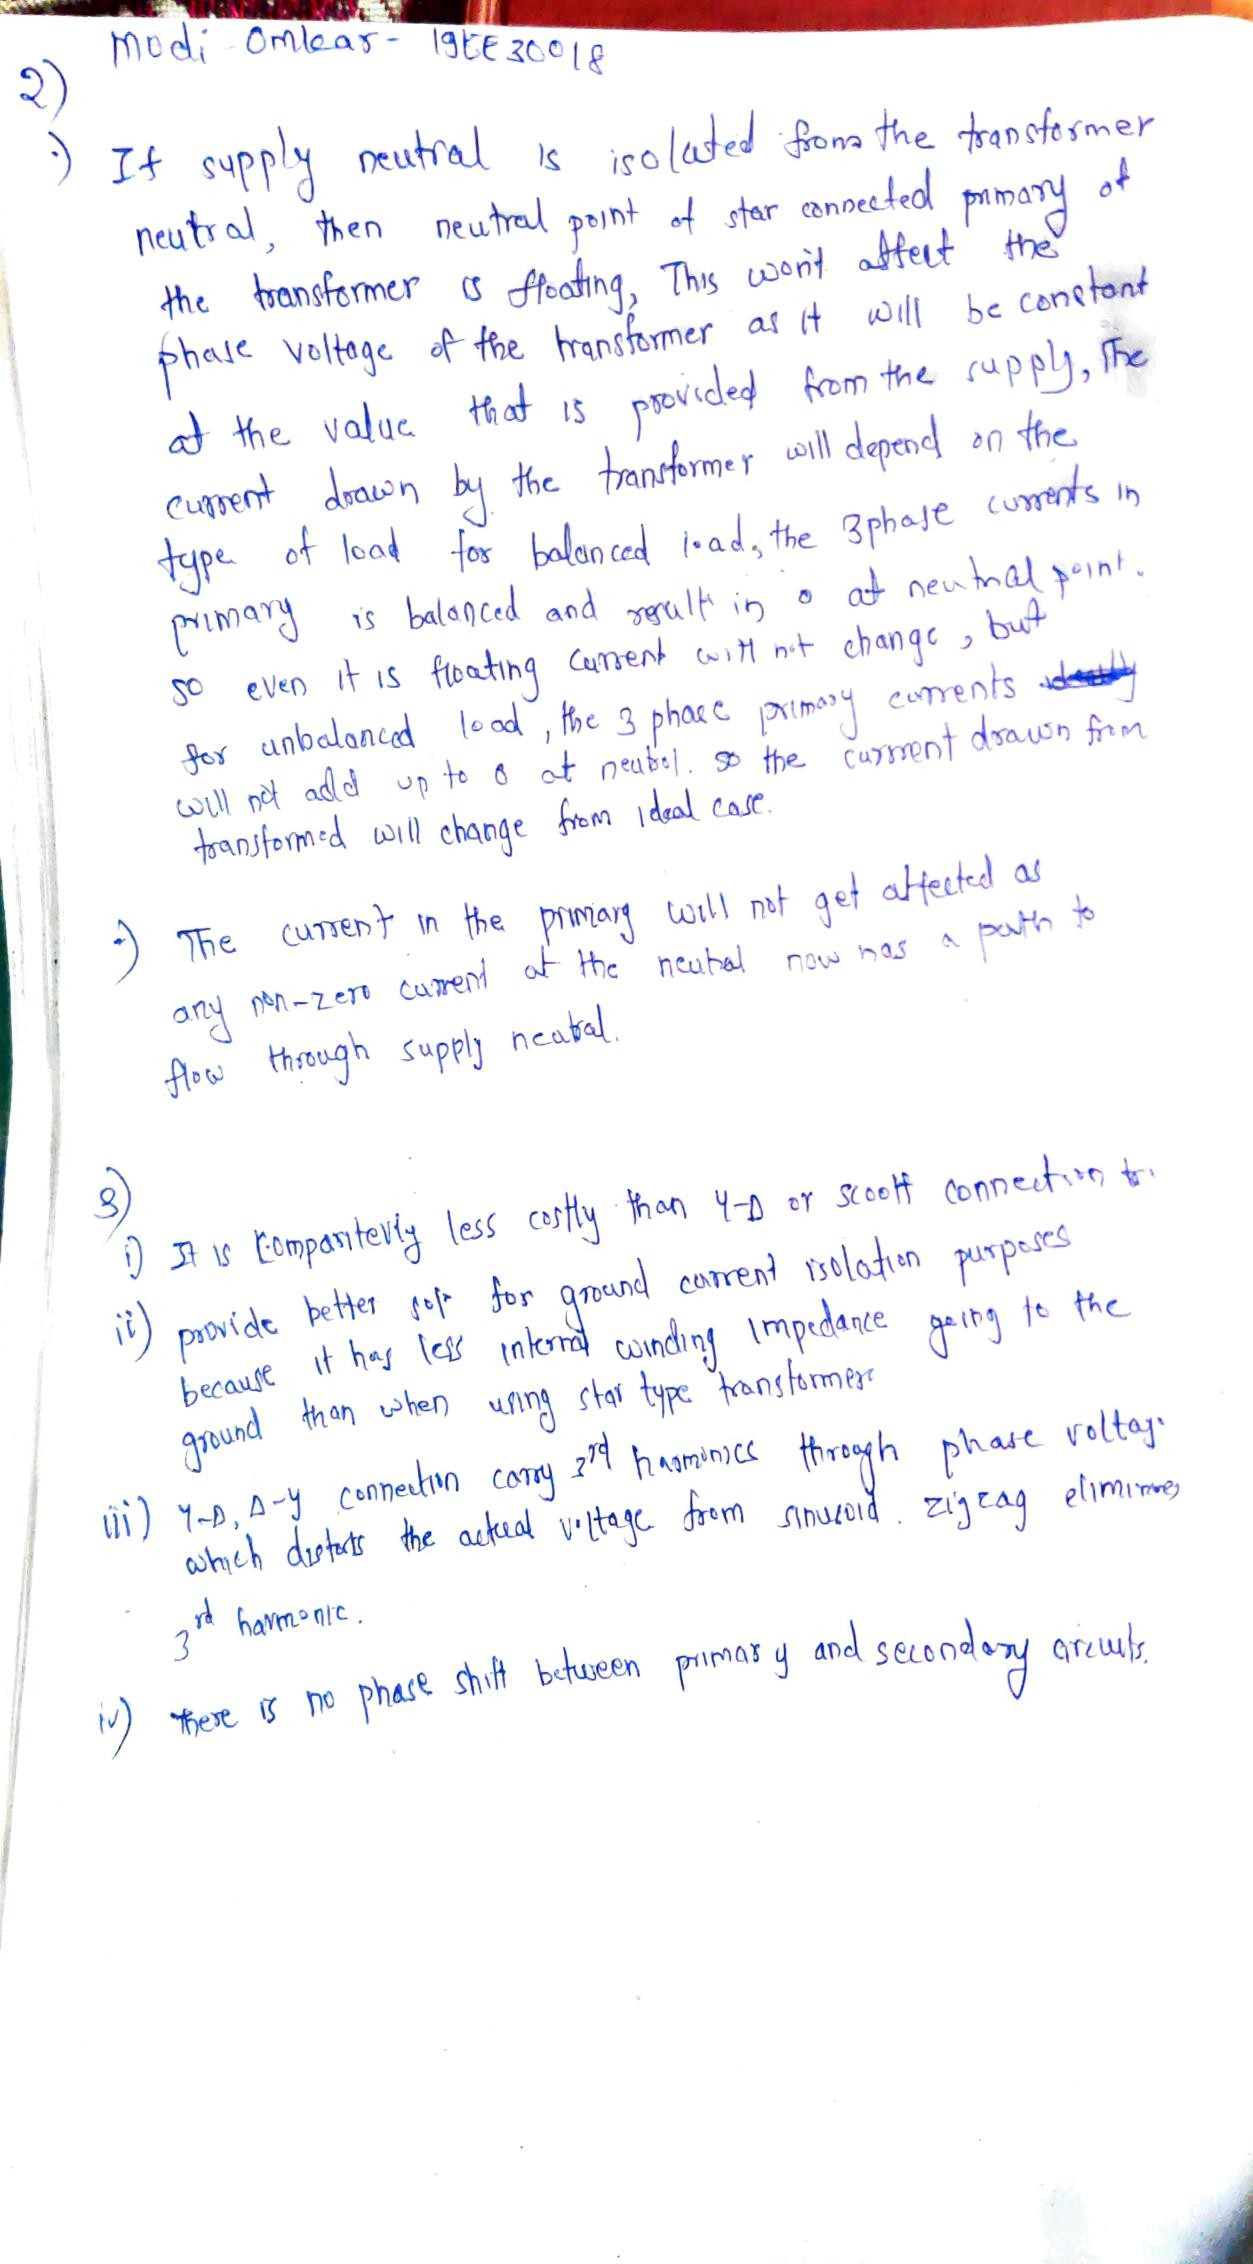 Modi Omkar - 19EE30018
2)
·) If supply neutral is isolated from the transformer
neutral, then neutral point of star connected primary of
the transformer is floating, This won't affect the
phase voltage of the transformer as it will be constant
at the value that is provided from the supply, The
current drawn by the transformer will depend on the
type of load for balanced load, the 3phase currents in
primary is balanced and result in 0 at neutral point.
so even it is floating current will not change, but
for unbalanced load, the 3 phase primary currents
will not add up to 0 at neutral. so the current drawn from
transformed will change from ideal case.
·) The current in the primary will not get affected as
any non-zero current at the neutral now has a path to
flow through supply neutral.
3)
i) It is comparitevly less costly than Y-Δ or scoott connection tr.
ii) provide better for ground current isolation purposes
because it has less internal winding impedance going to the
ground than when using star type transformer
iii) Y-Δ, Δ-Y connection carry 3rd harmonics through phase voltage
which distorts the actual voltage from sinusoid. zigzag eliminates
3rd harmonic.
iv) There is no phase shift between primary and secondary circuits.